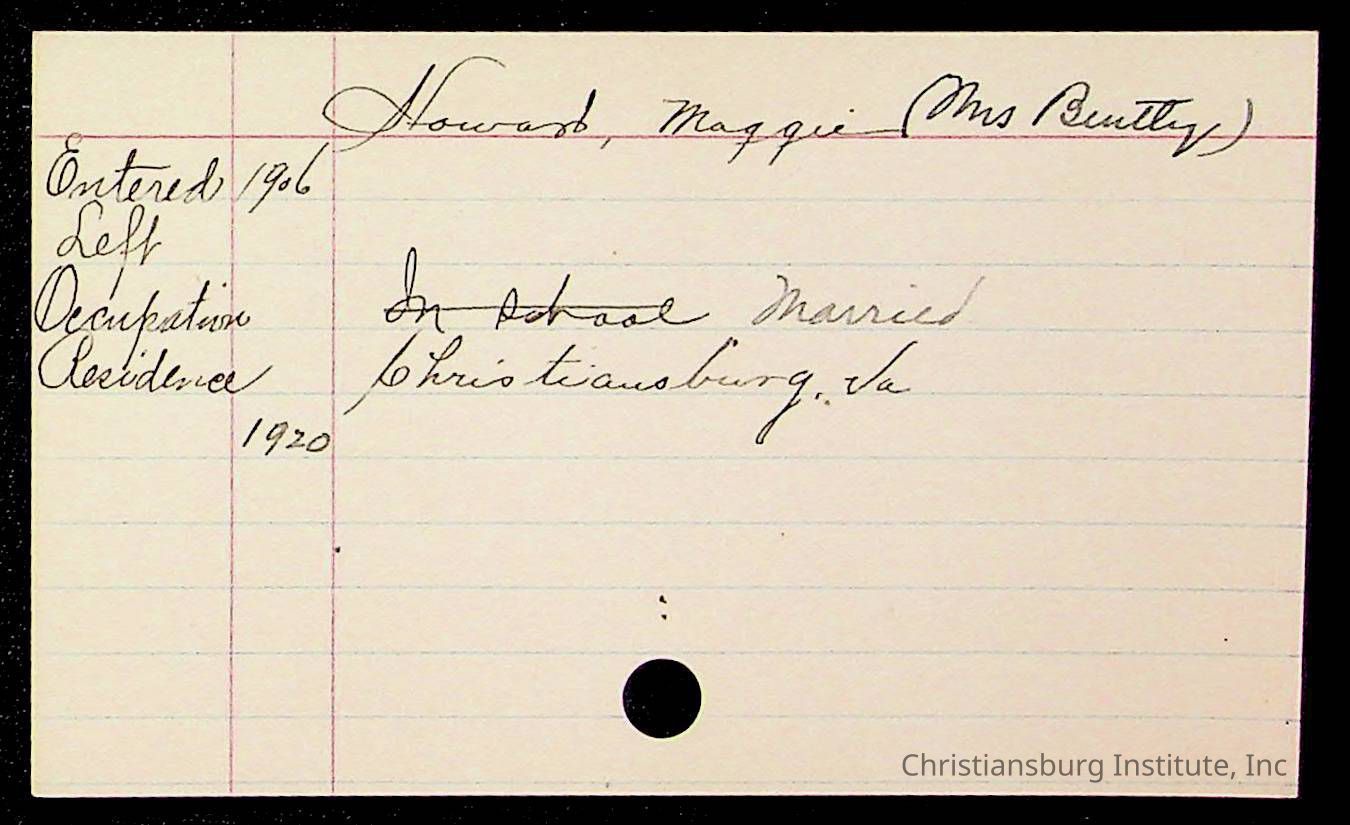 Howard, Maggie (Mrs Bentley)
Entered 1906
Left
Occupation In school Married
Residence Christiansburg, Va
1920
Christiansburg Institute, Inc